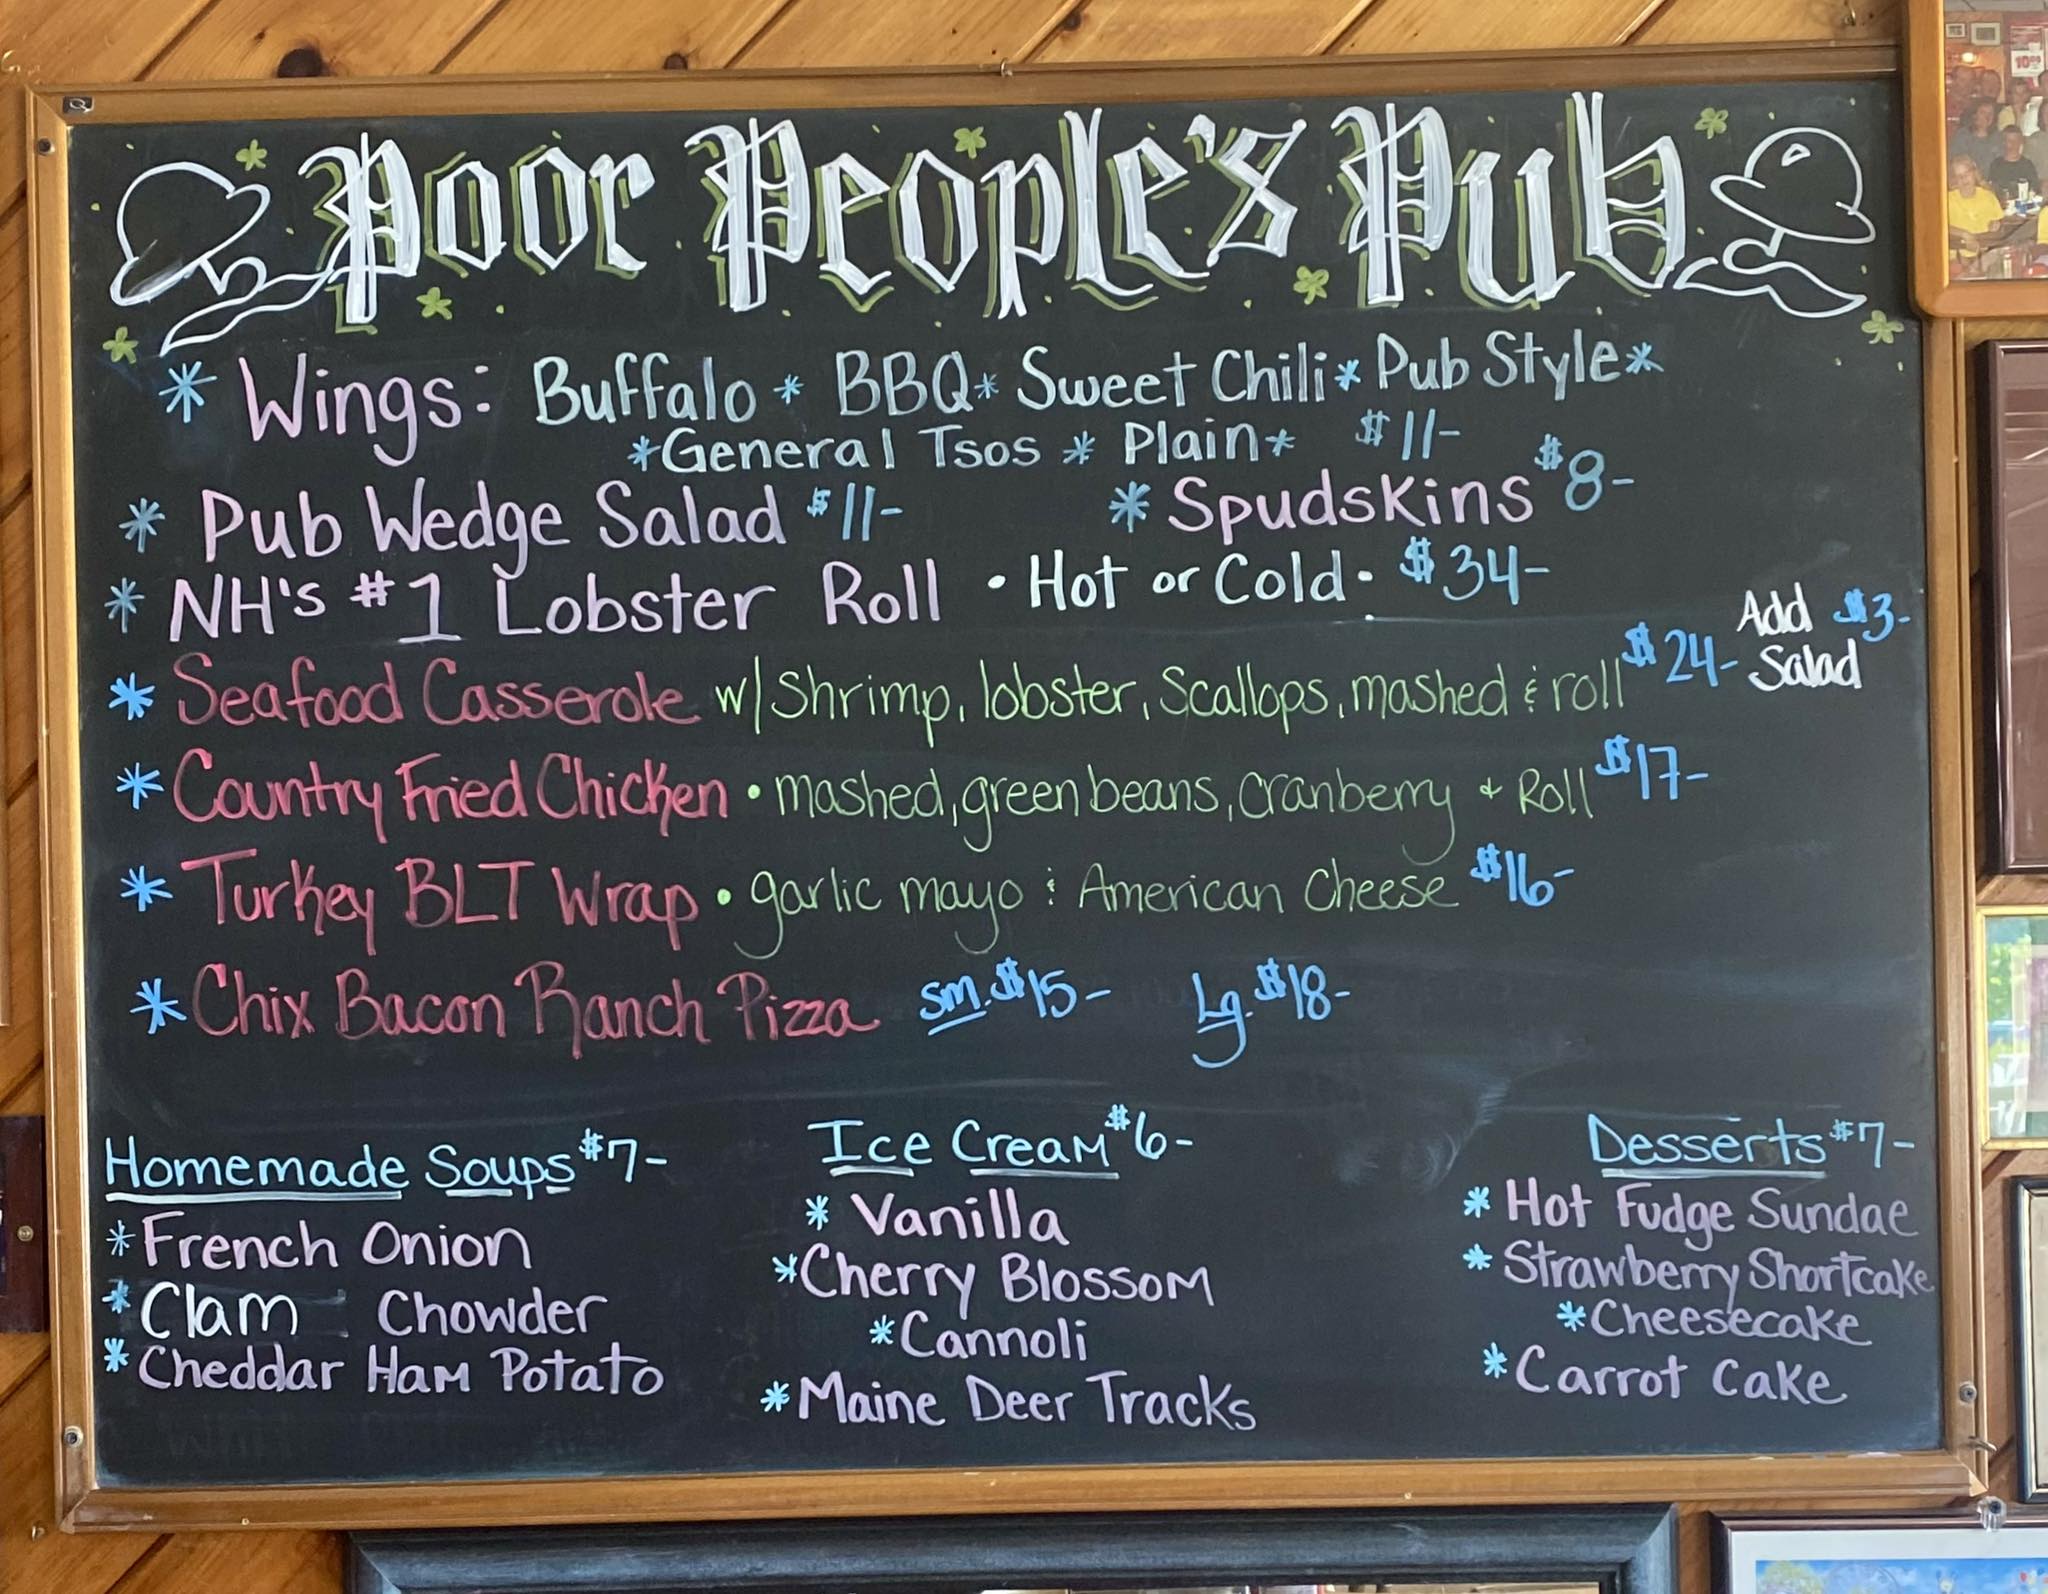 Poor People's Pub
* Wings: Buffalo * BBQ * Sweet Chili * Pub Style *
* General Tsos * Plain * $11-
* Pub Wedge Salad $11- * Spudskins $8-
* NH's #1 Lobster Roll • Hot or Cold • $34-
* Seafood Casserole w/ Shrimp, lobster, Scallops, mashed & roll $24- Add $3-
Salad
* Country Fried Chicken • mashed, green beans, cranberry + Roll $17-
* Turkey BLT Wrap • garlic mayo & American Cheese $16-
* Chix Bacon Ranch Pizza sm. $15- Lg. $18-
Homemade Soups $7-
* French Onion
* Clam Chowder
* Cheddar Ham Potato
Ice Cream $6-
* Vanilla
* Cherry Blossom
* Cannoli
* Maine Deer Tracks
Desserts $7-
* Hot Fudge Sundae
* Strawberry Shortcake
* Cheesecake
* Carrot Cake